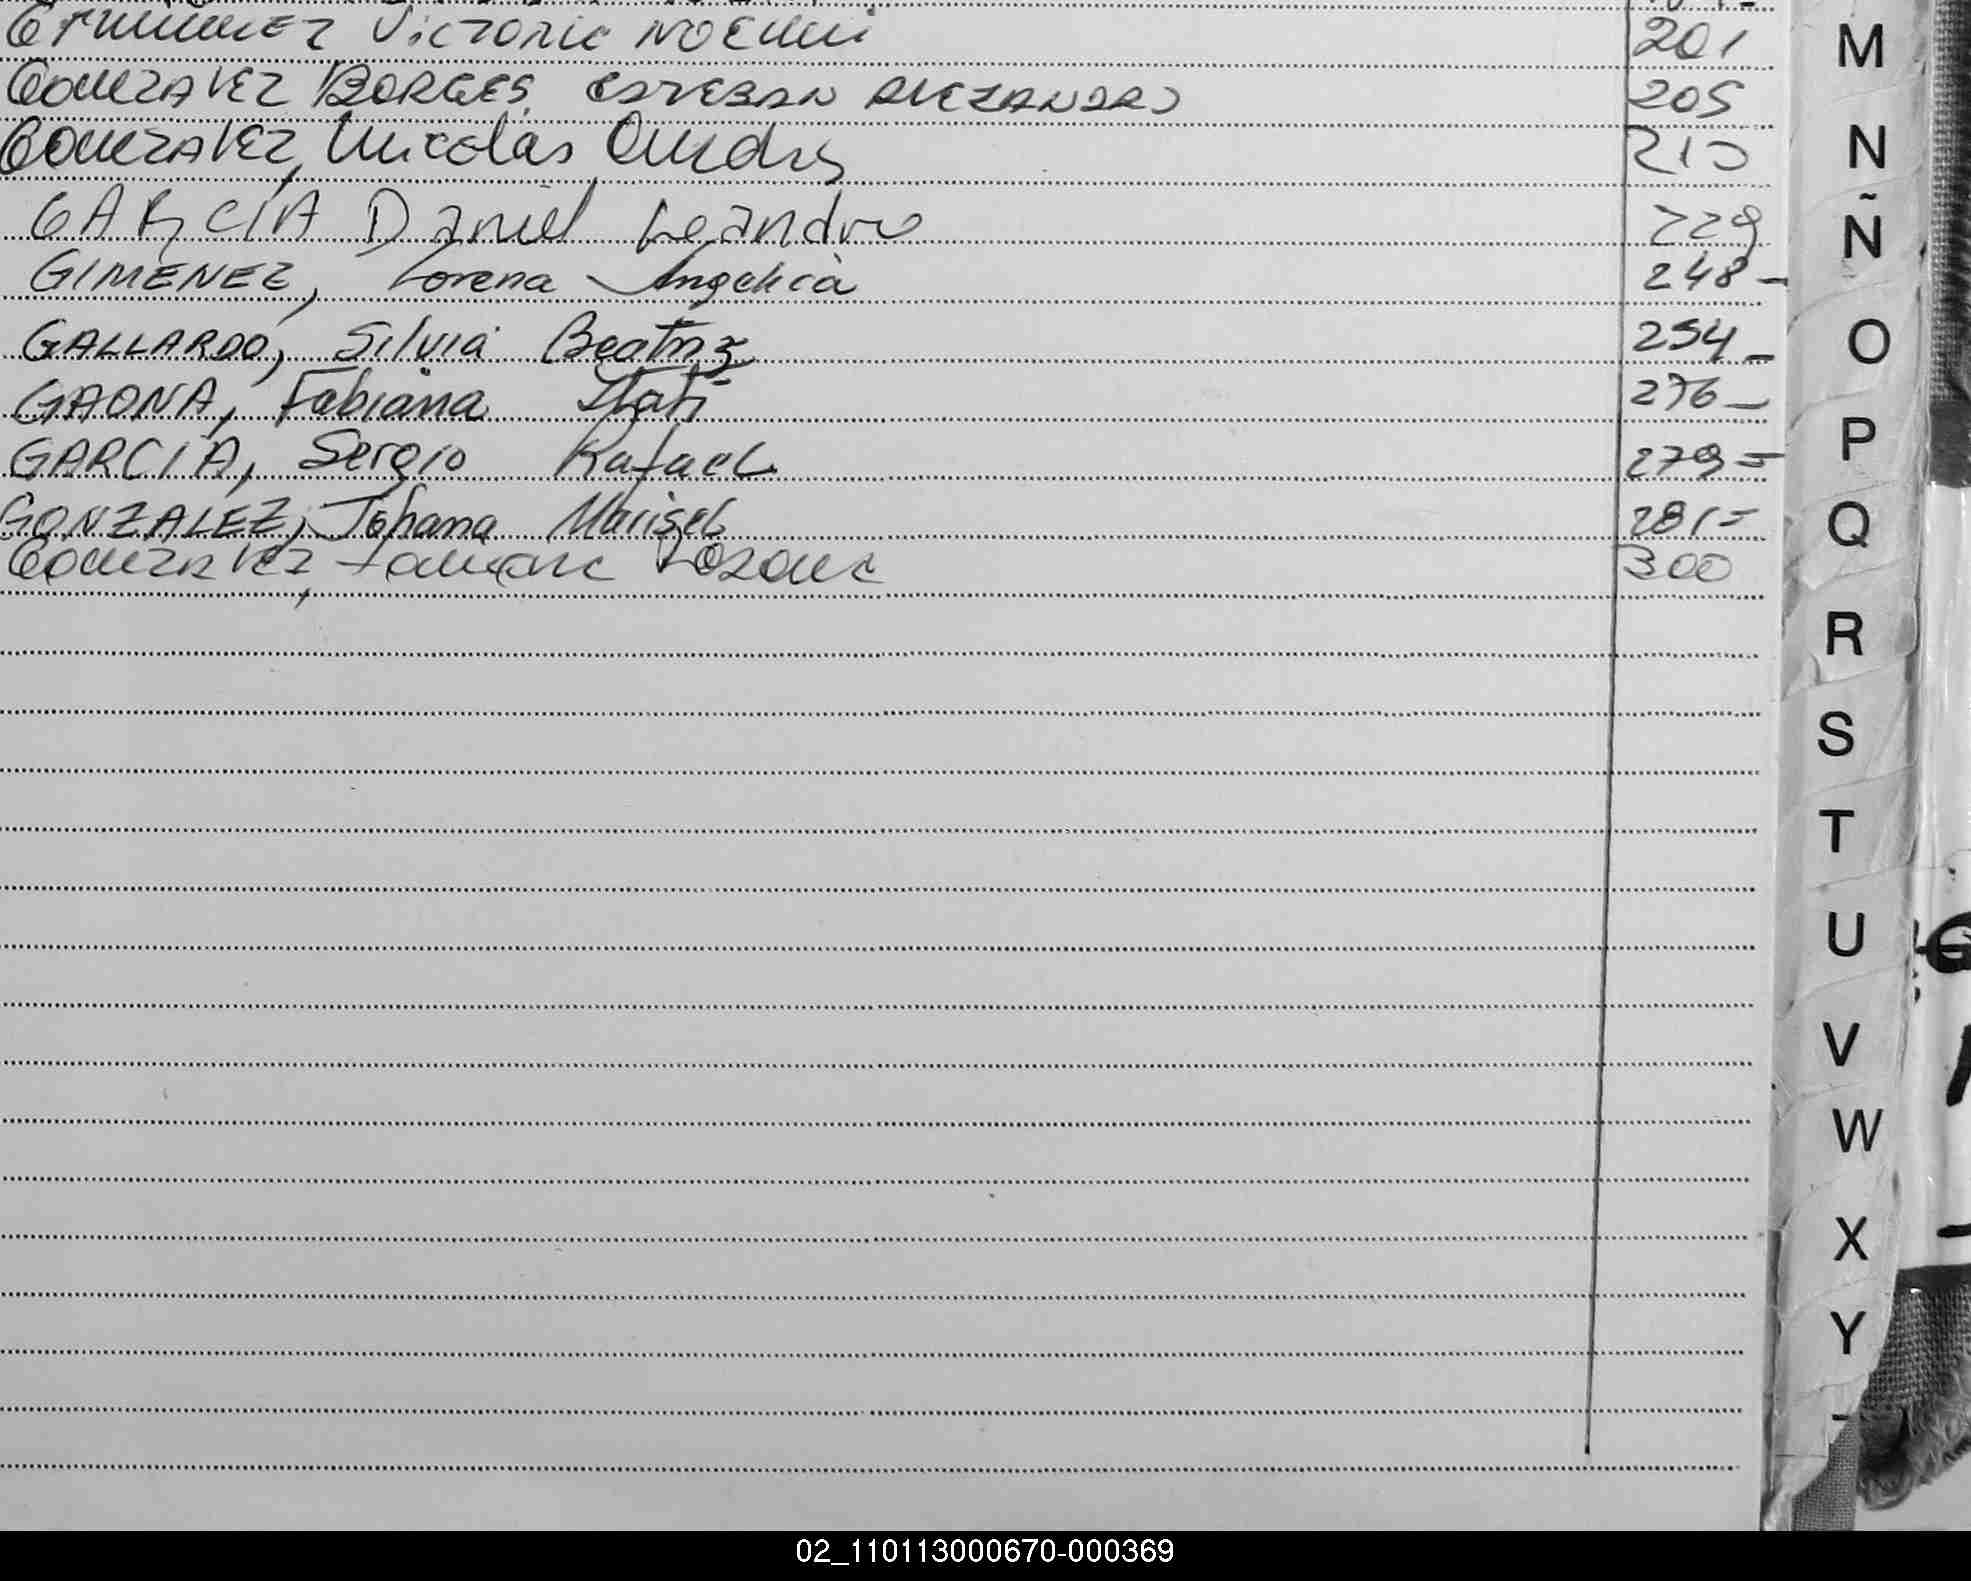 Victoria Noemi 201
Gonzalez Borges, Esteban Alejandro 205
Gonzalez, Nicolás Andrés 210
GARCIA Daniel Leandro 229
GIMENEZ, Lorena Angelica 248-
GALLARDO, Silvia Beatriz 254-
GAONA, Fabiana Itati 276-
GARCIA, Sergio Rafael 279=
GONZALEZ, Johana Marisel 281=
Gonzalez, Tamara Roxana 300
M
N
Ñ
O
P
Q
R
S
T
U
V
W
X
Y
02_110113000670-000369